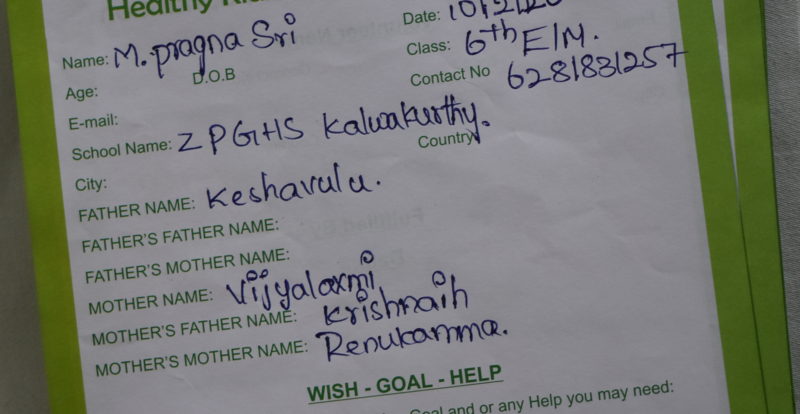 Healthy
Date: 10/2/20
Name: M. pragna Sri
Class: 6th E/M.
Age: D.O.B
Contact No 6281831257
E-mail:
School Name: ZPGHS Kalwakurthy.
City: Country
FATHER NAME: Keshavulu.
FATHER'S FATHER NAME:
FATHER'S MOTHER NAME:
MOTHER NAME: Vijyalaxmi
MOTHER'S FATHER NAME: Krishnaih
MOTHER'S MOTHER NAME: Renukamma.
WISH - GOAL - HELP
Goal and or any Help you may need: